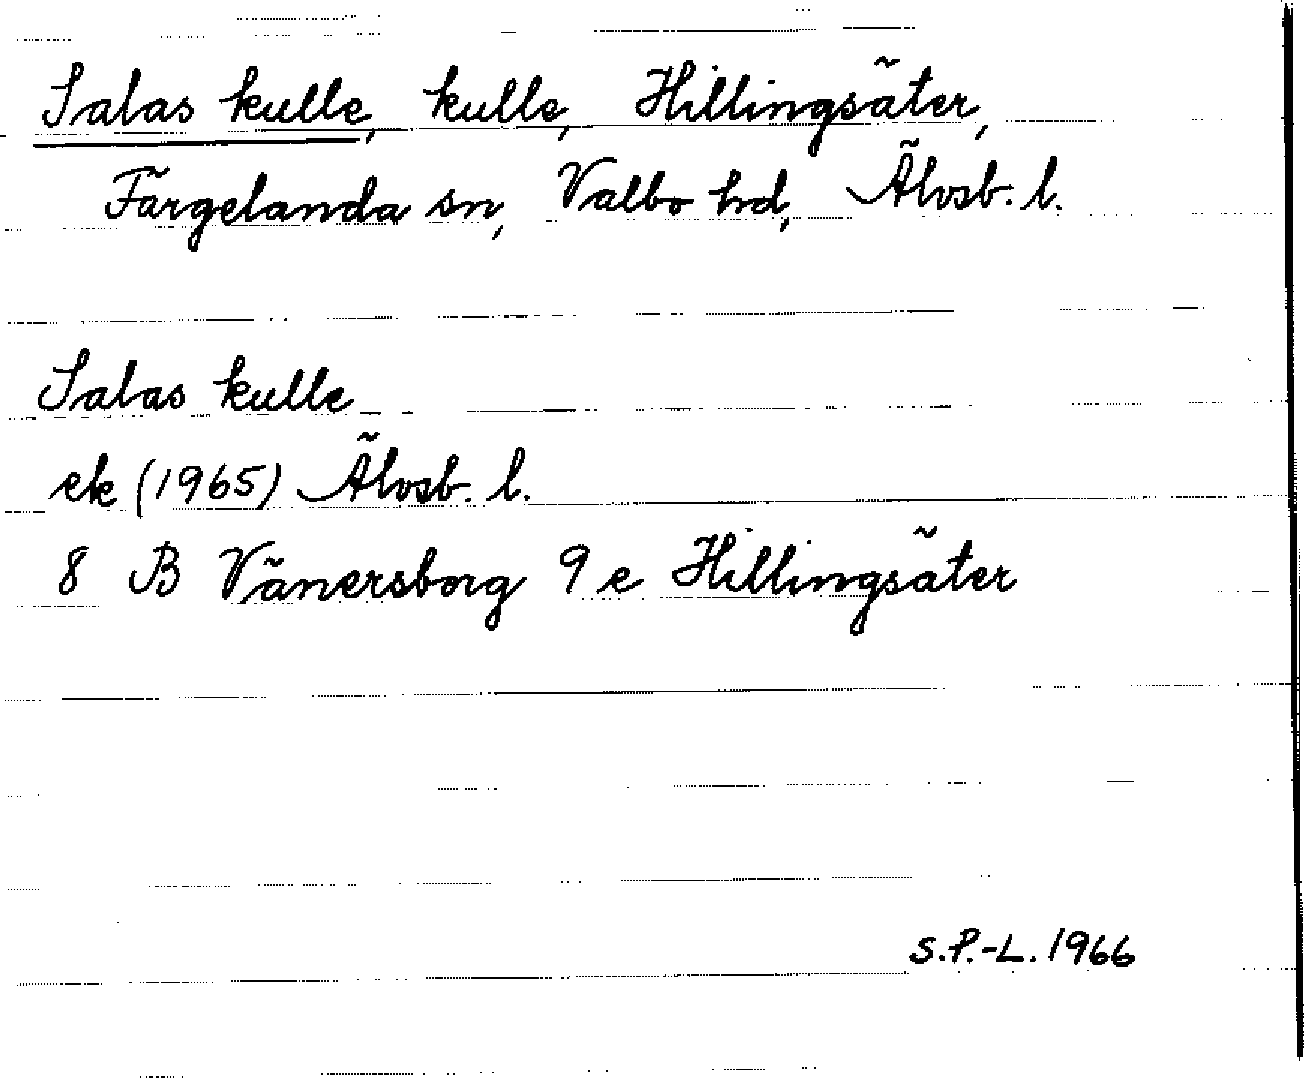 Salas kulle, kulle, Hillingsäter,
Färgelanda sn, Valbo hd, Älvsb. l.
Salas kulle
ek (1965) Älvsb. l.
8 B Vänersborg 9 e Hillingsäter
S.P.-L. 1966